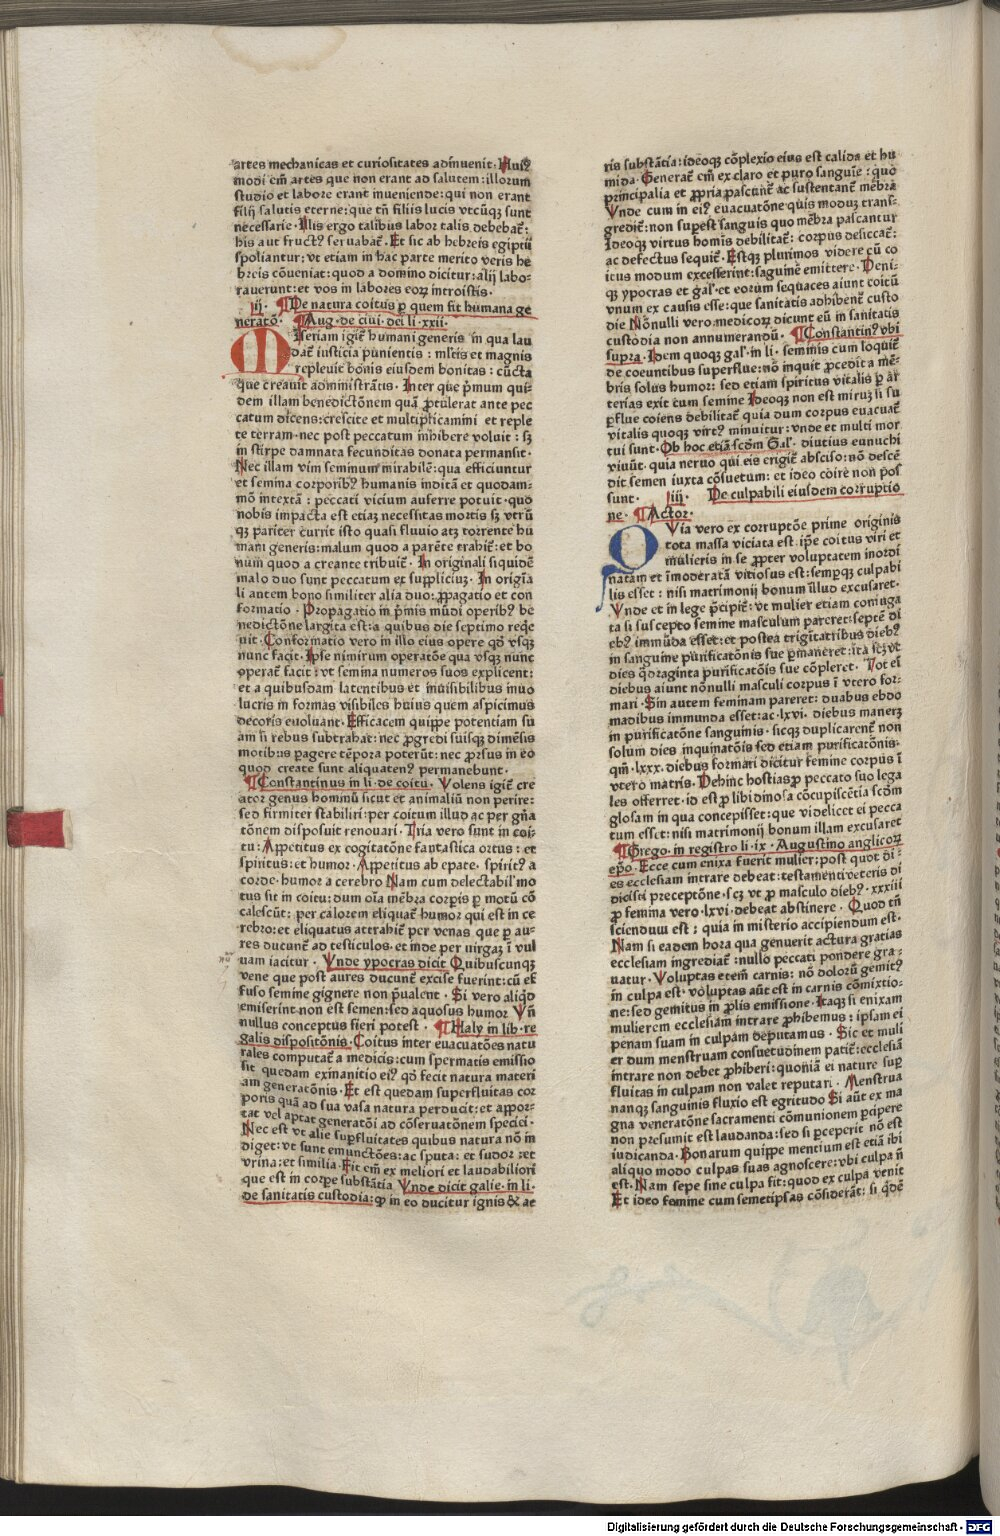 artes mechanicas et curiositates adinuenit. Huiꝰ
modi em̄ artes que non erant ad salutem: illorum
studio et labore erant inueniende: qui non erant
filij salutis eterne: que tn̄ filiis lucis vtcūqꝫ sunt
necessarie. Illis ergo talibus labor talis debebat̄:
his aut fructꝰ seruabat̄. Et sic ab hebreis egiptij
spoliantur: vt etiam in hac parte merito veris he
breis cōueniat: quod a domino dicitur: alij labo-
rauerunt: et vos in labores eoꝝ introistis.
iij. ¶De natura coitus ꝑ quem fit humana ge
neratō. ¶Aug. de ciui. dei li. xxii.
Miseriam igit̄ humani generis in qua lau
dat̄ iusticia punientis: ml̄tis et magnis
repleuit bonis eiusdem bonitas: cūcta
que creauit administrātis. Inter que p̄mum qui-
dem illam benedictōnem quā ꝓtulerat ante pec
catum dicens: crescite et multiplicamini et reple
te terram. nec post peccatum inhibere voluit: sꝫ
in stirpe damnata fecunditas donata permansit.
Nec illam vim seminum mirabilē: qua efficiuntur
et semina corporibꝰ humanis inditā et quodam-
mō intextā: peccati vicium auferre potuit. quo
nobis impacta est etiaꝫ necessitas mortis sꝫ vtrū
qꝫ pariter currit isto quasi fluuio atqꝫ torrente hu
mani generis: malum quod a parēte trahit̄: et bo
num quod a creante tribuit̄. In originali siquidē
malo duo sunt peccatum et suppliciuꝫ. In origīa
li autem bono similiter alia duo: ꝓpagatio et con
formatio. Propagatio in p̄mis mūdi operibꝰ be
nedictōne largita est: a quibus die septimo req̄e
uit. Conformatio vero in illo eius opere qd̄ vsqꝫ
nunc facit. Ipse nimirum operatōe qua vsqꝫ nunc
operat̄ facit: vt semina numeros suos explicent:
et a quibusdam latentibus et inuisibilibus inuo
lucris in formas visibiles huius quem aspicimus
decoris euoluant. Efficacem quippe potentiam su
am si rebus subtrahat: nec ꝓgredi suisqꝫ dimēsis
motibus ꝑagere tēpora poterūt: nec ꝓrsus in eo
quod create sunt aliquatenꝰ permanebunt.
¶Constantinus in li. de coitu. Volens igit̄ cre
ator genus hominū sicut et animaliū non perire:
sed firmiter stabiliri: per coitum illud ac per gn̄a
tōnem disposuit renouari. Tria vero sunt in coi-
tu: Appetitus ex cogitatōne fantastica ortus: et
spiritus: et humor. Appetitus ab epate. spiritꝰ a
corde. humor a cerebro Nam cum delectabil' mo
tus sit in coitu: dum oīa mēbra corpis ꝑ motū cō
calescūt: per calorem eliquat̄ humor qui est in ce
rebro: et eliquatus attrahit̄ per venas que ꝑ au-
res ducunt̄ ad testiculos. et inde per uirgaꝫ ī vul
uam iacitur. Vnde ypocras dicit Quibuscunqꝫ
vene que post aures ducunt̄ excise fuerint: cū ef
fuso semine gignere non p̄ualent. Si vero aliqd̄
emiserint non est semen: sed aquosus humor Vn̄
nullus conceptus fieri potest. ¶Haly in lib. re
galis dispositōnis. Coitus inter euacuatōes natu
rales computat̄ a medicis: cum spermatis emissio
sit quedam exinanitio eiꝰ qd̄ fecit natura materi
am generatōnis. Et est quedam superfluitas cor
poris quā ad sua vasa natura perducit: et appor-
tat vel aptat generatōi ad cōseruatōnem speciei.
Nec est vt alie suꝑfluitates quibus natura nō in
diget: vt sunt emunctōes: ac sputa: et sudor: et
vrina: et similia. Fit em̄ ex meliori et laudabiliori
que est in corpe substātia Vnde dicit galie. in li.
de sanitatis custodia: ꝙ in eo ducitur ignis & ae
ris substātia: ideoqꝫ cōplexio eius est calida et hu
mida. Generat̄ em̄ ex claro et puro sanguie: quo
principalia et ꝓpria pascunt̄ ac sustentant̄ mēbra
Vnde cum in eiꝰ euacuatōne quis moduꝫ trans-
gredit̄: non suꝑest sanguis quo mēbra pascantur
Ideoqꝫ virtus homīs debilitat̄: corpus desiccat̄:
ac defectus sequit̄. Estqꝫ plurimos videre cū co
itus modum excesserint: saguinē emittere. Deni-
qꝫ ypocras et gal'. et eorum sequaces aiunt coitū
vnum ex causis esse: que sanitatis adhibent̄ custo
die Nōnulli vero medicoꝝ dicunt eū in sanitatis
custodia non annumerandū. ¶Constantinꝰ vbi
supra. Idem quoqꝫ gal'. in li. seminis cum loquit̄
de coeuntibus superflue: nō inquit ꝓcedit a mē-
bris solus humor: sed etiam spiritus vitalis ꝑ ar
terias exit cum semine Ideoqꝫ non est miruꝫ si su
ꝑflue coiens debilitat̄ quia dum corpus euacuat̄
vitalis quoqꝫ virtꝰ minuitur: vnde et multi mor
tui sunt. Ob hoc etiā scdm Gal'. diutius eunuchi
viuūt. quia neruo qui eis erigit̄ absciso: nō descē
dit semen iuxta cōsuetum: et ideo coire non pos
sunt. iiij. De culpabili eiusdem corruptio
ne. ¶Actor.
QVia vero ex corruptōe prime originis
tota massa viciata est. ip̄e coitus viri et
mulieris in se ꝓpter voluptatem inordi
natam et īmoderatā vitiosus est: semꝑqꝫ culpabi
lis esset: nisi matrimonij bonum illud excusaret.
Vnde et in lege p̄cipit̄: vt mulier etiam coniuga
ta si suscepto semine masculum pareret: septē di
ebꝰ immūda esset: et postea trigītatribus diebꝰ
in sanguine purificatōnis sue ꝑmaneret: ita scꝫ vt
dies q̄draginta purificatōis sue cōpleret. Tot ef
diebus aiunt nōnulli masculi corpus ī vtero for-
mari. Sin autem feminam pareret: duabus ebdo
madibus immunda esset: ac. lxvi. diebus maneꝝ
in purificatōne sanguinis. sicqꝫ duplicarent̄ non
solum dies inquinatōis sed etiam purificatōnis.
qm̄. lxxx. diebus formari dicitur femine corpus ī
vtero matris. Dehinc hostias ꝓ peccato suo lega
les offerret. id est ꝓ libidinosa cōcupiscētia scdm
glosam in qua concepisset: que videlicet ei pecca
tum esset: nisi matrimonij bonum illam excusaret
¶Grego. in registro li. ix. Augustino anglicoꝝ
ep̄o. Ecce cum enixa fuerit mulier: post quot di-
es ecclesiam intrare debeat: testamenti veteris di
dicisti preceptōne. scꝫ vt ꝓ masculo diebꝰ. xxxiii
ꝓ femina vero. lxvi. debeat abstinere. Quod tn̄
sciendum est: quia in misterio accipiendum est.
Nam si eadem hora qua genuerit actura gratias
ecclesiam ingrediat̄: nullo peccati pondere gra-
uatur. Voluptas etem̄ carnis: nō dolorū gemitꝰ
in culpa est. voluptas aūt est in carnis cōmixtio-
ne: sed gemitus in ꝓlis emissione. Itaqꝫ si enixam
mulierem ecclesiam intrare ꝓhibemus: ipsam ei
penam suam in culpam deputamus. Sic et muli
er dum menstruam consuetudinem patit̄: ecclesiā
intrare non debet ꝓhiberi: quoniā ei nature suꝑ
fluitas in culpam non valet reputari. Menstrua
nanqꝫ sanguinis fluxio est egritudo Si aūt ex ma
gna veneratōne sacramenti cōmunionem ꝑcipere
non presumit est laudanda: sed si ꝑceperit nō est
iudicanda. Bonarum quippe mentium est etiā ibi
aliquo modo culpas suas agnoscere: vbi culpa n̄
est. Nam sepe sine culpa fit: quod ex culpa venit
Et ideo femine cum semetipsas cōsiderāt: si q̄dē
Digitalisierung gefördert durch die Deutsche Forschungsgemeinschaft - DFG